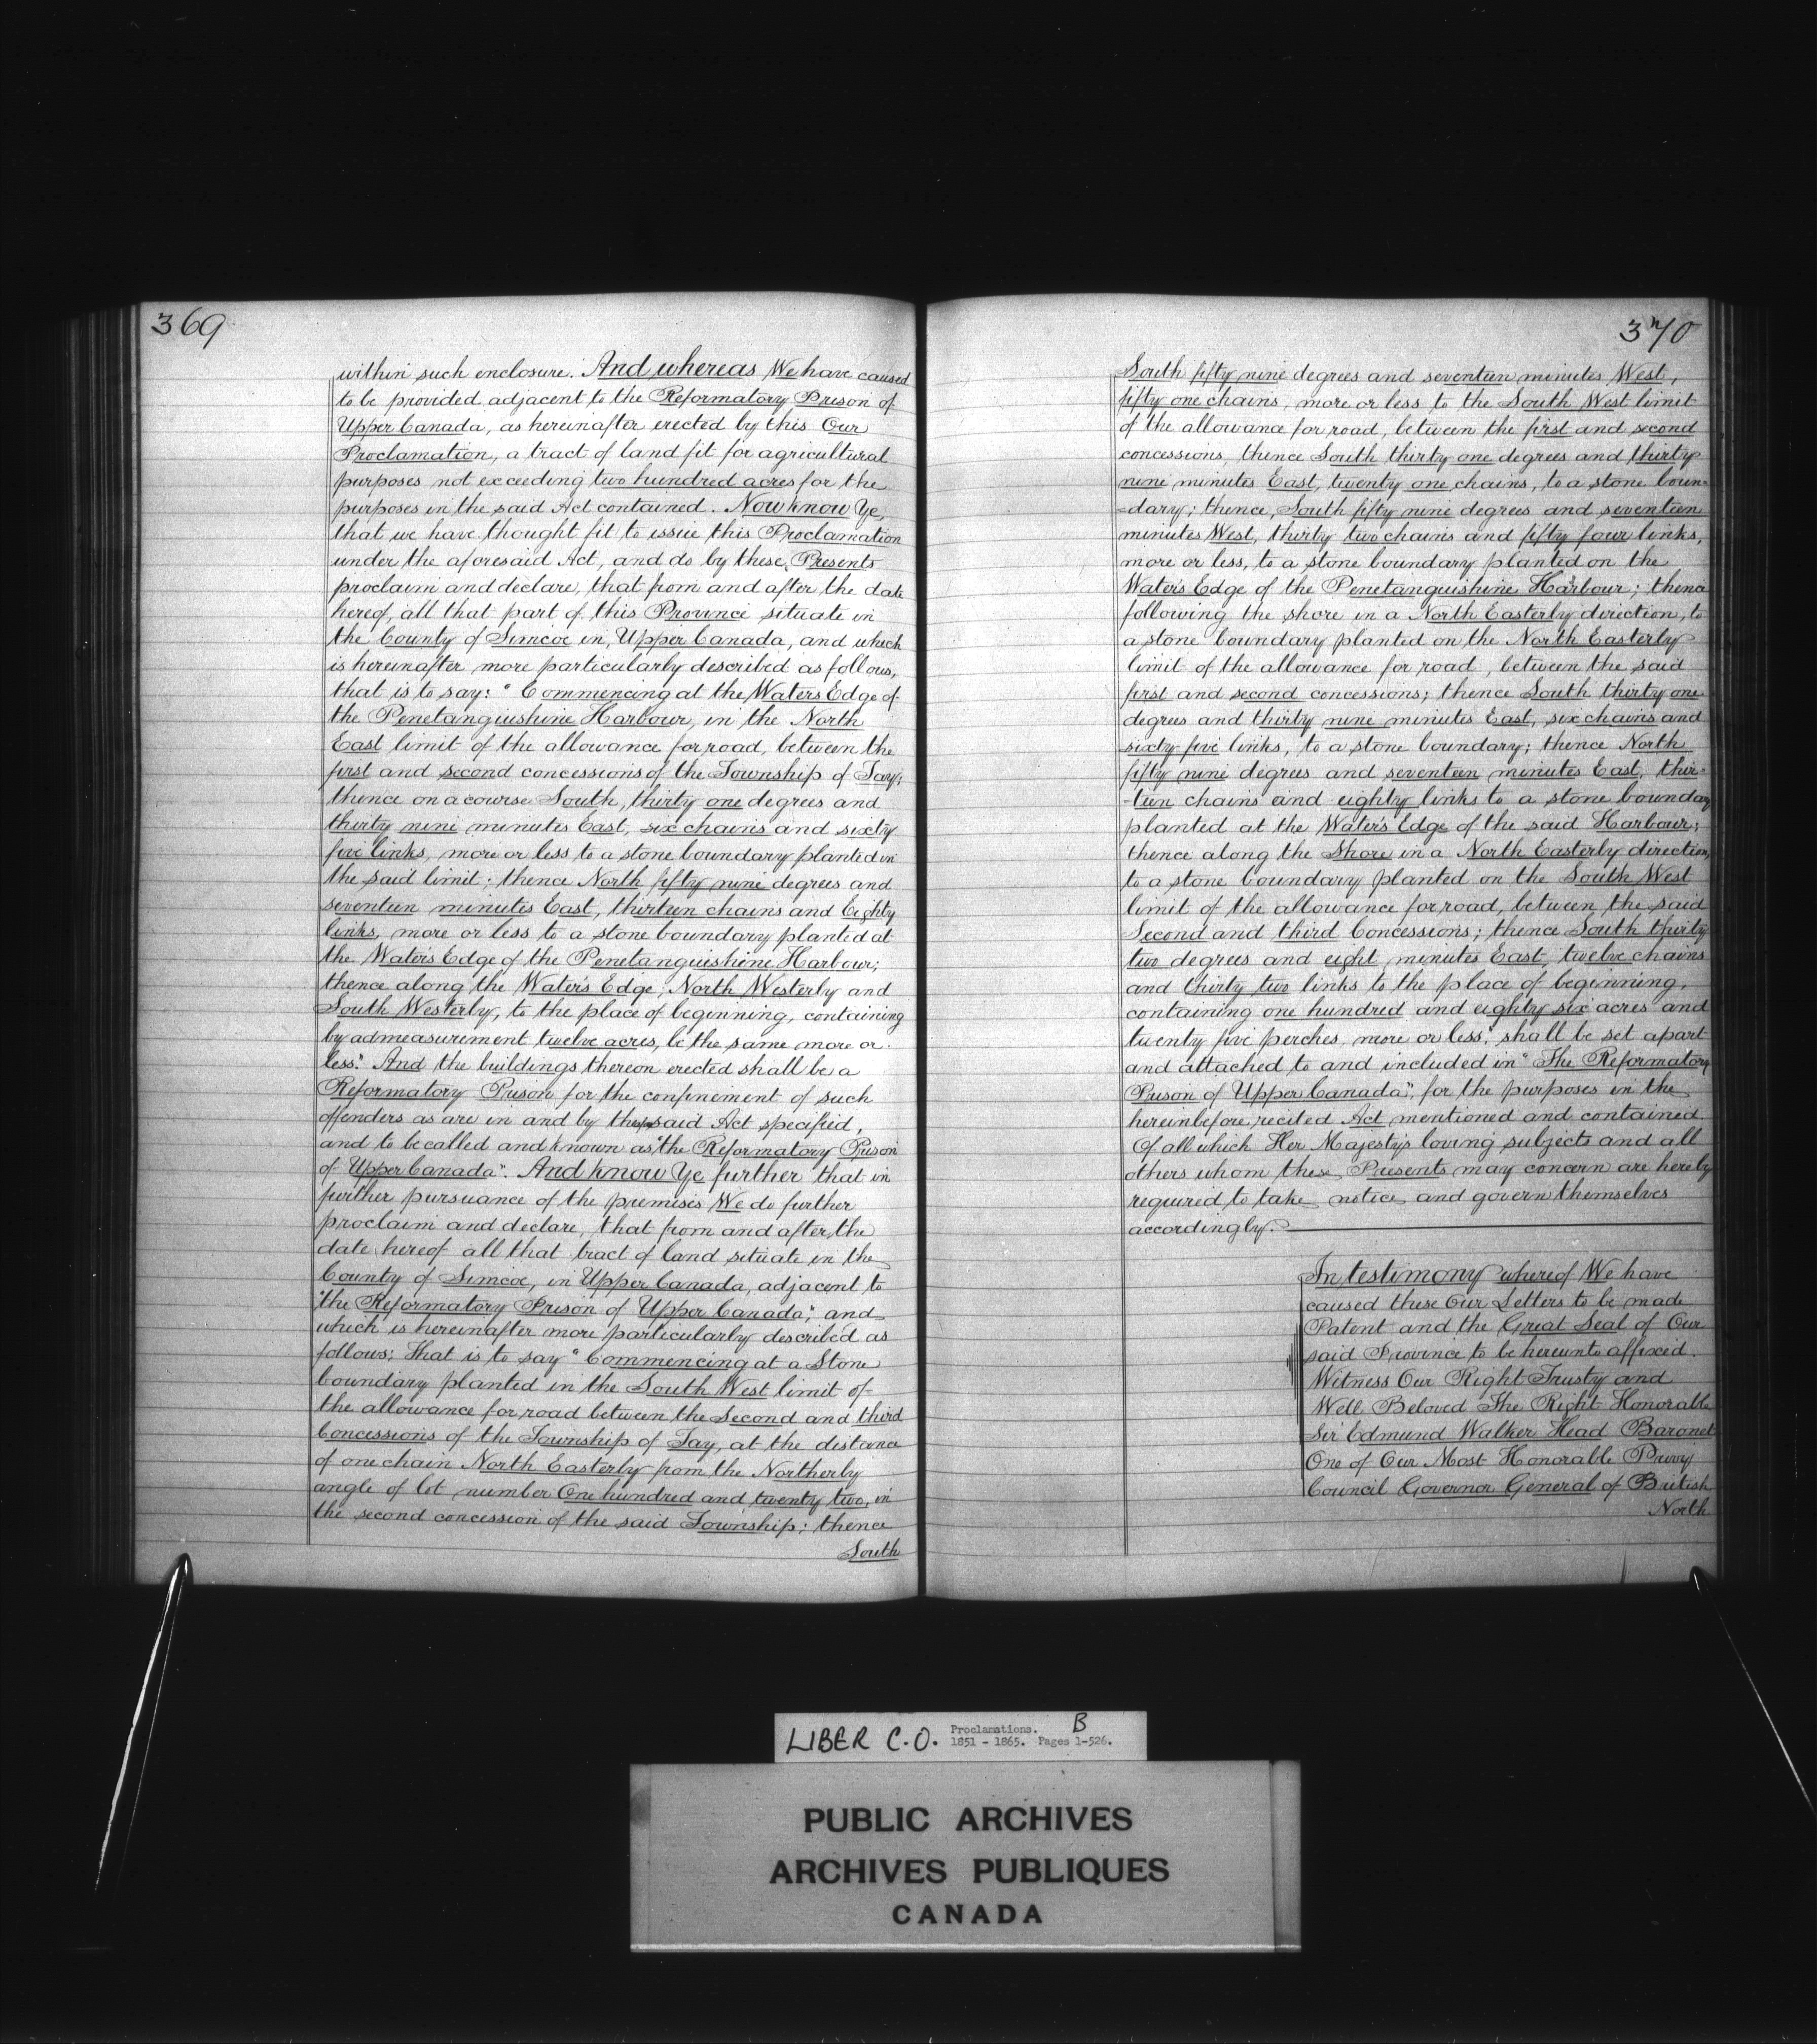 369
within such enclosure. And whereas We have caused
to be provided adjacent to the Reformatory Prison of
Upper Canada, as hereinafter erected by this Our
Proclamation, a tract of land fit for agricultural
purposes not exceeding two hundred acres for the
purposes in the said Act contained. Now know Ye,
that we have thought fit to issue this Proclamation
under the aforesaid Act, and do by these Presents
proclaim and declare, that from and after the date
hereof, all that part of this Province situate in
the County of Simcoe in Upper Canada, and which
is hereinafter more particularly described as follows,
that is to say: "Commencing at the Waters Edge of
the Penetanguishine Harbour, in the North
East limit of the allowance for road, between the
first and second concessions of the Township of Tay;
thence on a course South, thirty one degrees and
thirty nine minutes East, six chains and sixty
five links, more or less to a stone boundary planted in
the said limit; thence North fifty nine degrees and
seventeen minutes East, thirteen chains and Eighty
links, more or less to a stone boundary planted at
the Water's Edge of the Penetanguishine Harbour;
thence along the Water's Edge, North Westerly and
South Westerly, to the place of beginning, containing
by admeasurement twelve acres, be the same more or
less." And the buildings thereon erected shall be a
Reformatory Prison for the confinement of such
offenders as are in and by the said Act specified,
and to be called and known as "the Reformatory Prison
of Upper Canada". And know Ye further that in
further pursuance of the premises We do further
proclaim and declare, that from and after the
date hereof all that tract of land situate in the
County of Simcoe, in Upper Canada, adjacent to
"the Reformatory Prison of Upper Canada," and
which is hereinafter more particularly described as
follows: that is to say "Commencing at a Stone
boundary planted in the South West limit of
the allowance for road between the Second and third
Concessions of the Township of Tay, at the distance
of one chain North Easterly from the Northerly
angle of lot number One hundred and twenty two, in
the second concession of the said Township; thence
South
370
South fifty nine degrees and seventeen minutes West,
fifty one chains, more or less to the South West limit
of the allowance for road, between the first and second
concessions, thence South thirty one degrees and thirty
nine minutes East, twenty one chains, to a stone boun=
=dary; thence, South fifty nine degrees and seventeen
minutes West, thirty two chains and fifty four links,
more or less, to a stone boundary planted on the
Water's Edge of the Penetanguishine Harbour; thence
following the shore in a North Easterly direction, to
a stone boundary planted on the North Easterly
limit of the allowance for road, between the said
first and second concessions; thence South thirty one
degrees and thirty nine minutes East, six chains and
sixty five links, to a stone boundary; thence North
fifty nine degrees and seventeen minutes East, thir=
-teen chains and eighty links to a stone boundary
planted at the Water's Edge of the said Harbour;
thence along the Shore in a North Easterly direction,
to a stone boundary planted on the South West
limit of the allowance for road, between the said
Second and third Concessions; thence South thirty
two degrees and eight minutes East, twelve chains
and thirty two links to the place of beginning,
containing one hundred and eighty six acres and
twenty five perches, more or less," shall be set apart
and attached to and included in "The Reformatory
Prison of Upper Canada", for the purposes in the
hereinbefore recited Act mentioned and contained
Of all which Her Majesty's loving subjects and all
others whom these Presents may concern are hereby
required to take notice and govern themselves
accordingly.
In testimony whereof We have
caused these Our Letters to be made
Patent and the Great Seal of Our
said Province to be hereunto affixed.
Witness Our Right Trusty and
Well Beloved The Right Honorable
Sir Edmund Walker Head Baronet
One of Our Most Honorable Privy
Council Governor General of British
North
LIBER C.O. Proclamations. B
1851 - 1865. Pages 1-526.
PUBLIC ARCHIVES
ARCHIVES PUBLIQUES
CANADA